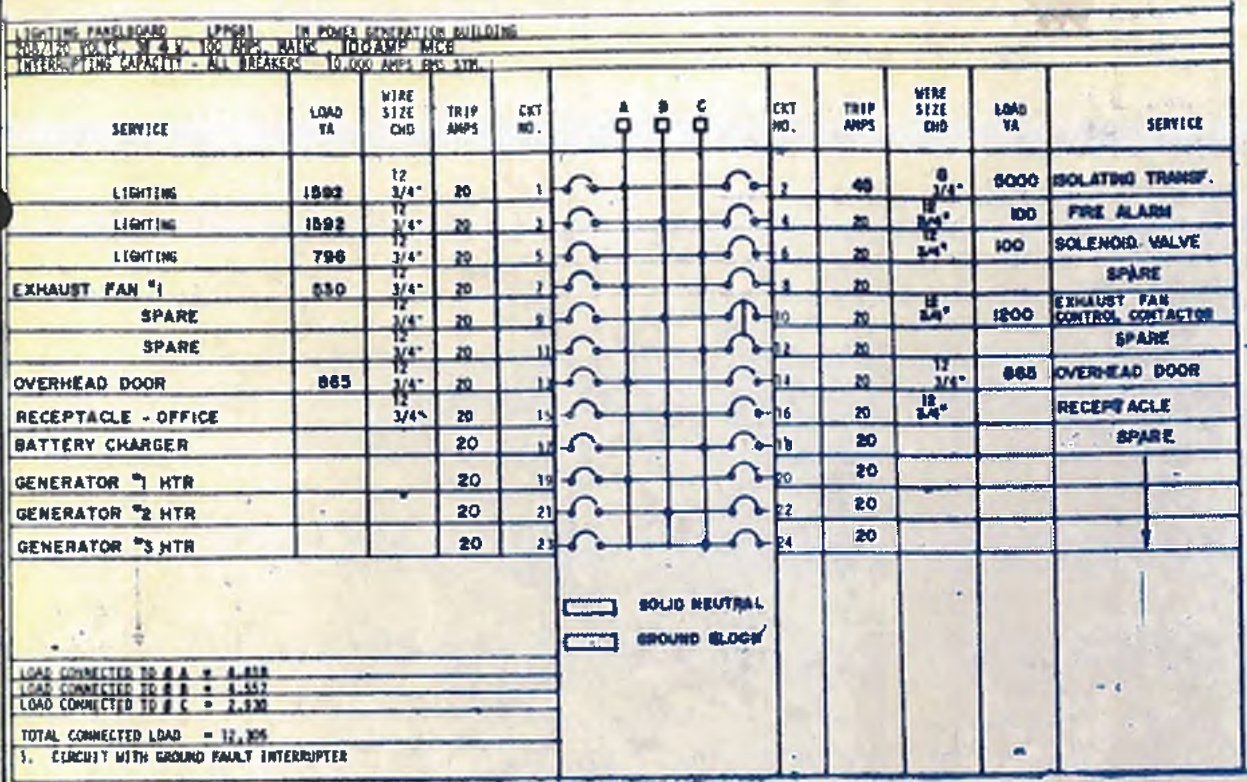 LIGHTING PANELBOARD LPPGB1 IN POWER GENERATION BUILDING
208/120 VOLTS, 3Ø 4 W, 100 AMPS, MAINS, 100AMP MCB
INTERRUPTING CAPACITY - ALL BREAKERS 10,000 AMPS RMS SYM.
SERVICE LOAD VA WIRE SIZE CND TRIP AMPS CKT NO. A B C CKT NO. TRIP AMPS WIRE SIZE CND LOAD VA SERVICE
LIGHTING 1592 12 3/4" 20 1 2 40 8 3/4" 5000 ISOLATING TRANSF.
LIGHTING 1592 12 3/4" 20 3 4 20 12 3/4" 100 FIRE ALARM
LIGHTING 796 12 3/4" 20 5 6 20 12 3/4" 100 SOLENOID VALVE
EXHAUST FAN #1 12 3/4" 20 7 8 20 SPARE
SPARE 12 3/4" 20 9 10 20 12 3/4" 1200 EXHAUST FAN CONTROL CONTACTOR
SPARE 12 3/4" 20 11 12 20 SPARE
OVERHEAD DOOR 865 12 3/4" 20 13 14 20 12 3/4" 865 OVERHEAD DOOR
RECEPTACLE - OFFICE 12 3/4" 20 15 16 20 12 3/4" RECEPTACLE
BATTERY CHARGER 20 17 18 20 SPARE
GENERATOR #1 HTR 20 19 20 20
GENERATOR #2 HTR 20 21 22 20
GENERATOR #3 HTR 20 23 24 20
SOLID NEUTRAL
GROUND BLOCK
LOAD CONNECTED TO Ø A =
LOAD CONNECTED TO Ø B =
LOAD CONNECTED TO Ø C =
TOTAL CONNECTED LOAD =
CIRCUIT WITH GROUND FAULT INTERRUPTER